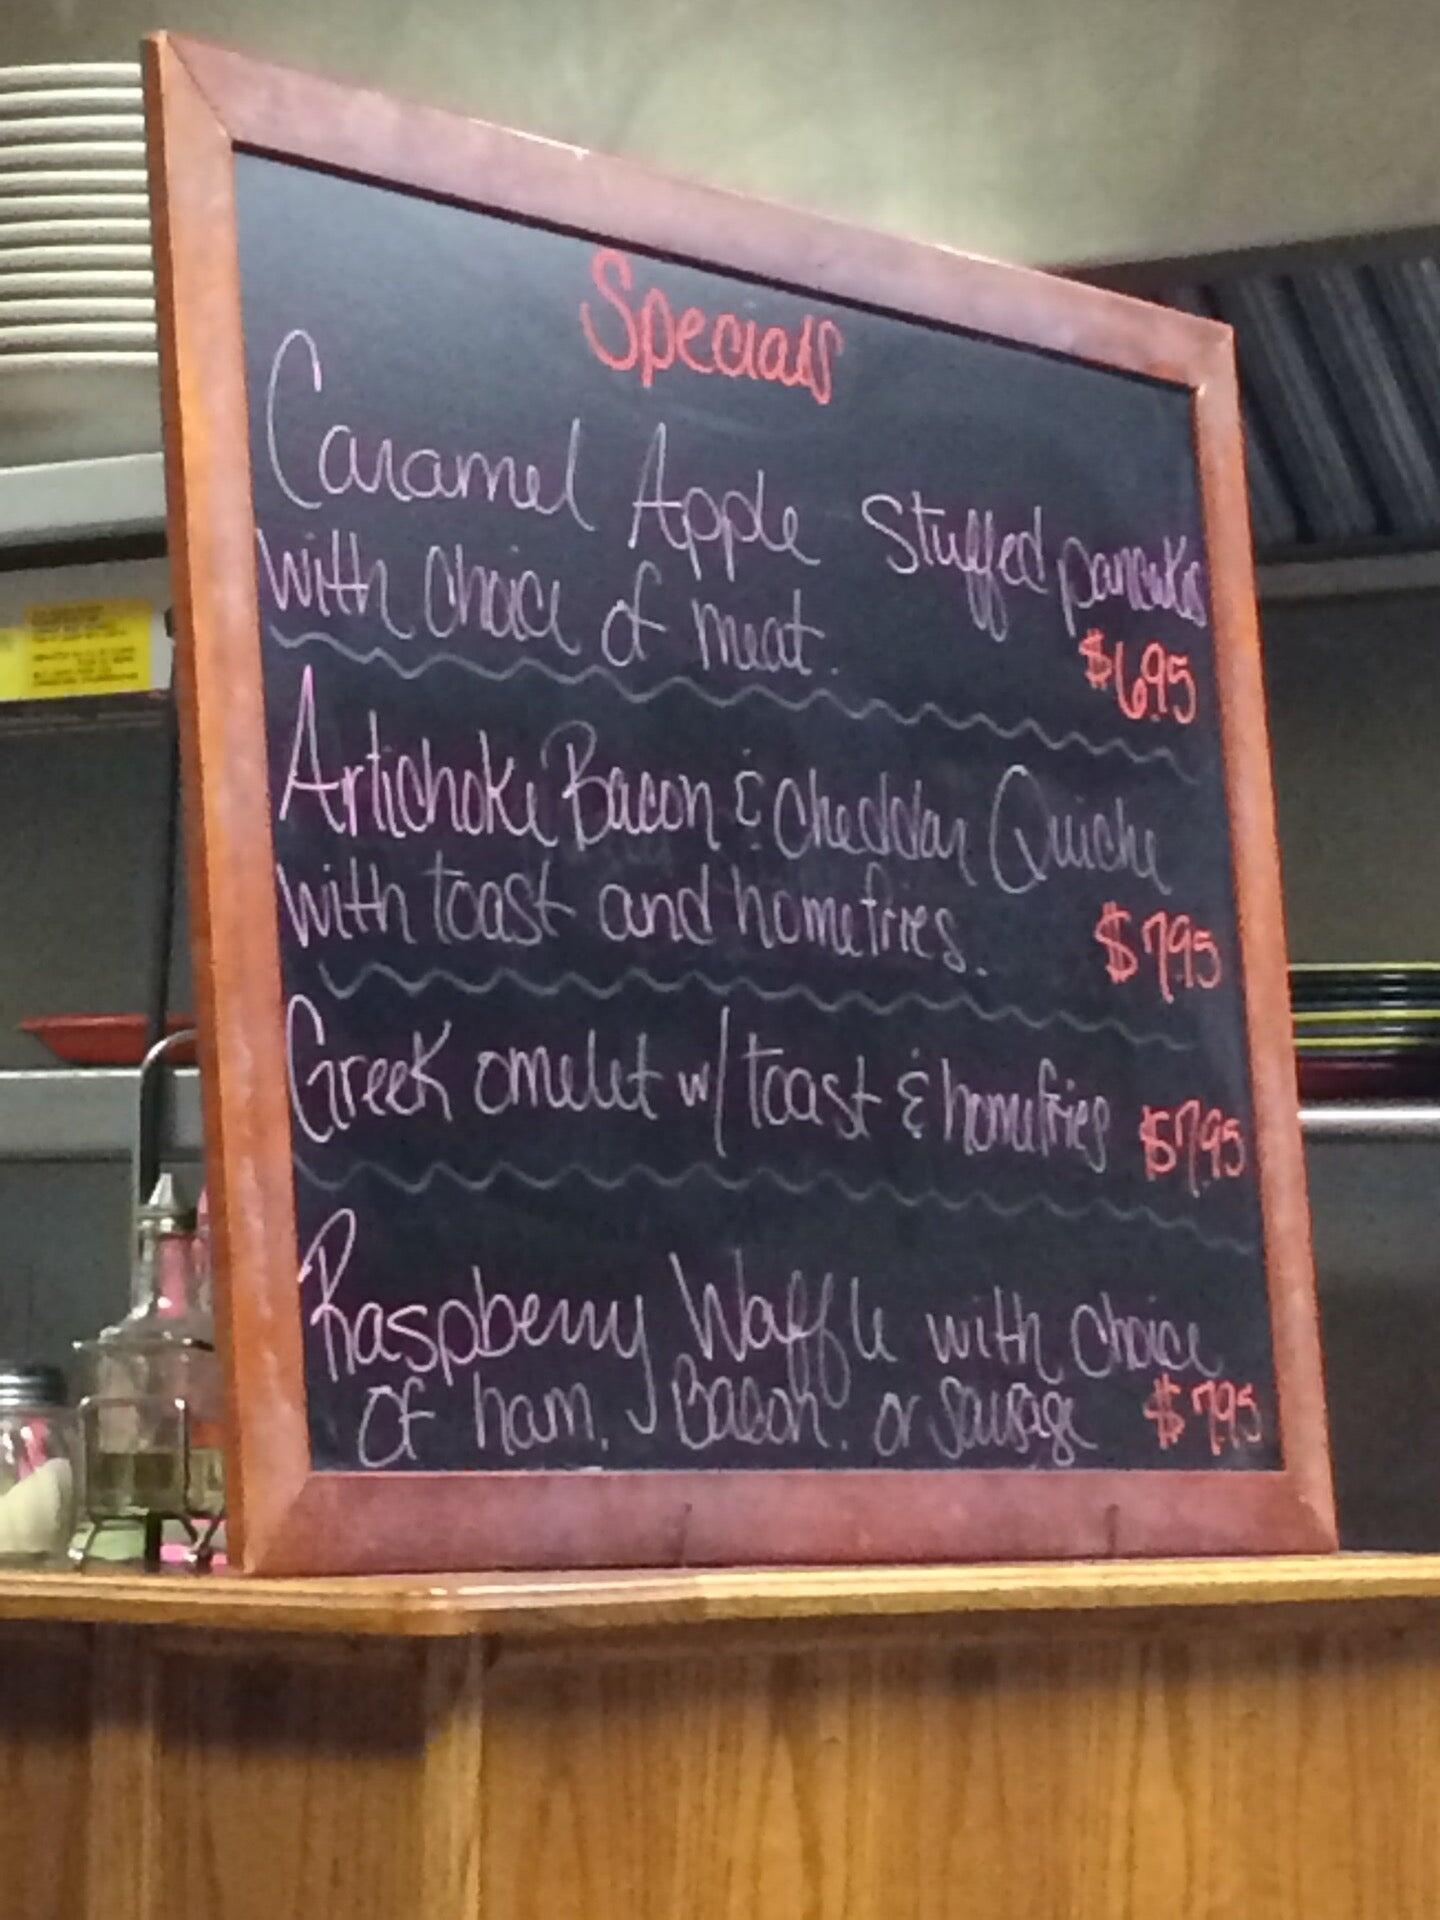 Specials
Caramel Apple Stuffed pancakes
with choice of meat.
$6.95
Artichoke Bacon & cheddar Quiche
with toast and homefries.
$7.95
Greek omelet w/ toast & homefries $7.95
Raspberry Waffle with choice
of ham, Bacon, or sausage $7.95